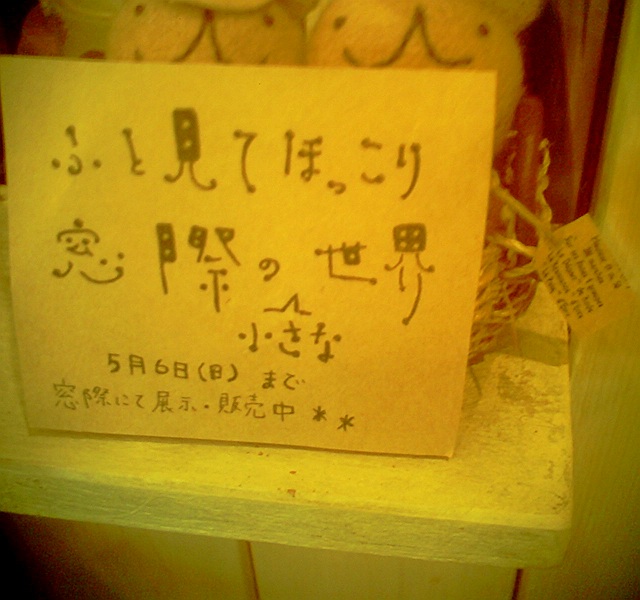 ふと見てほっこり
窓際の世界
小さな
5月6日(日) まで
窓際にて展示・販売中 **